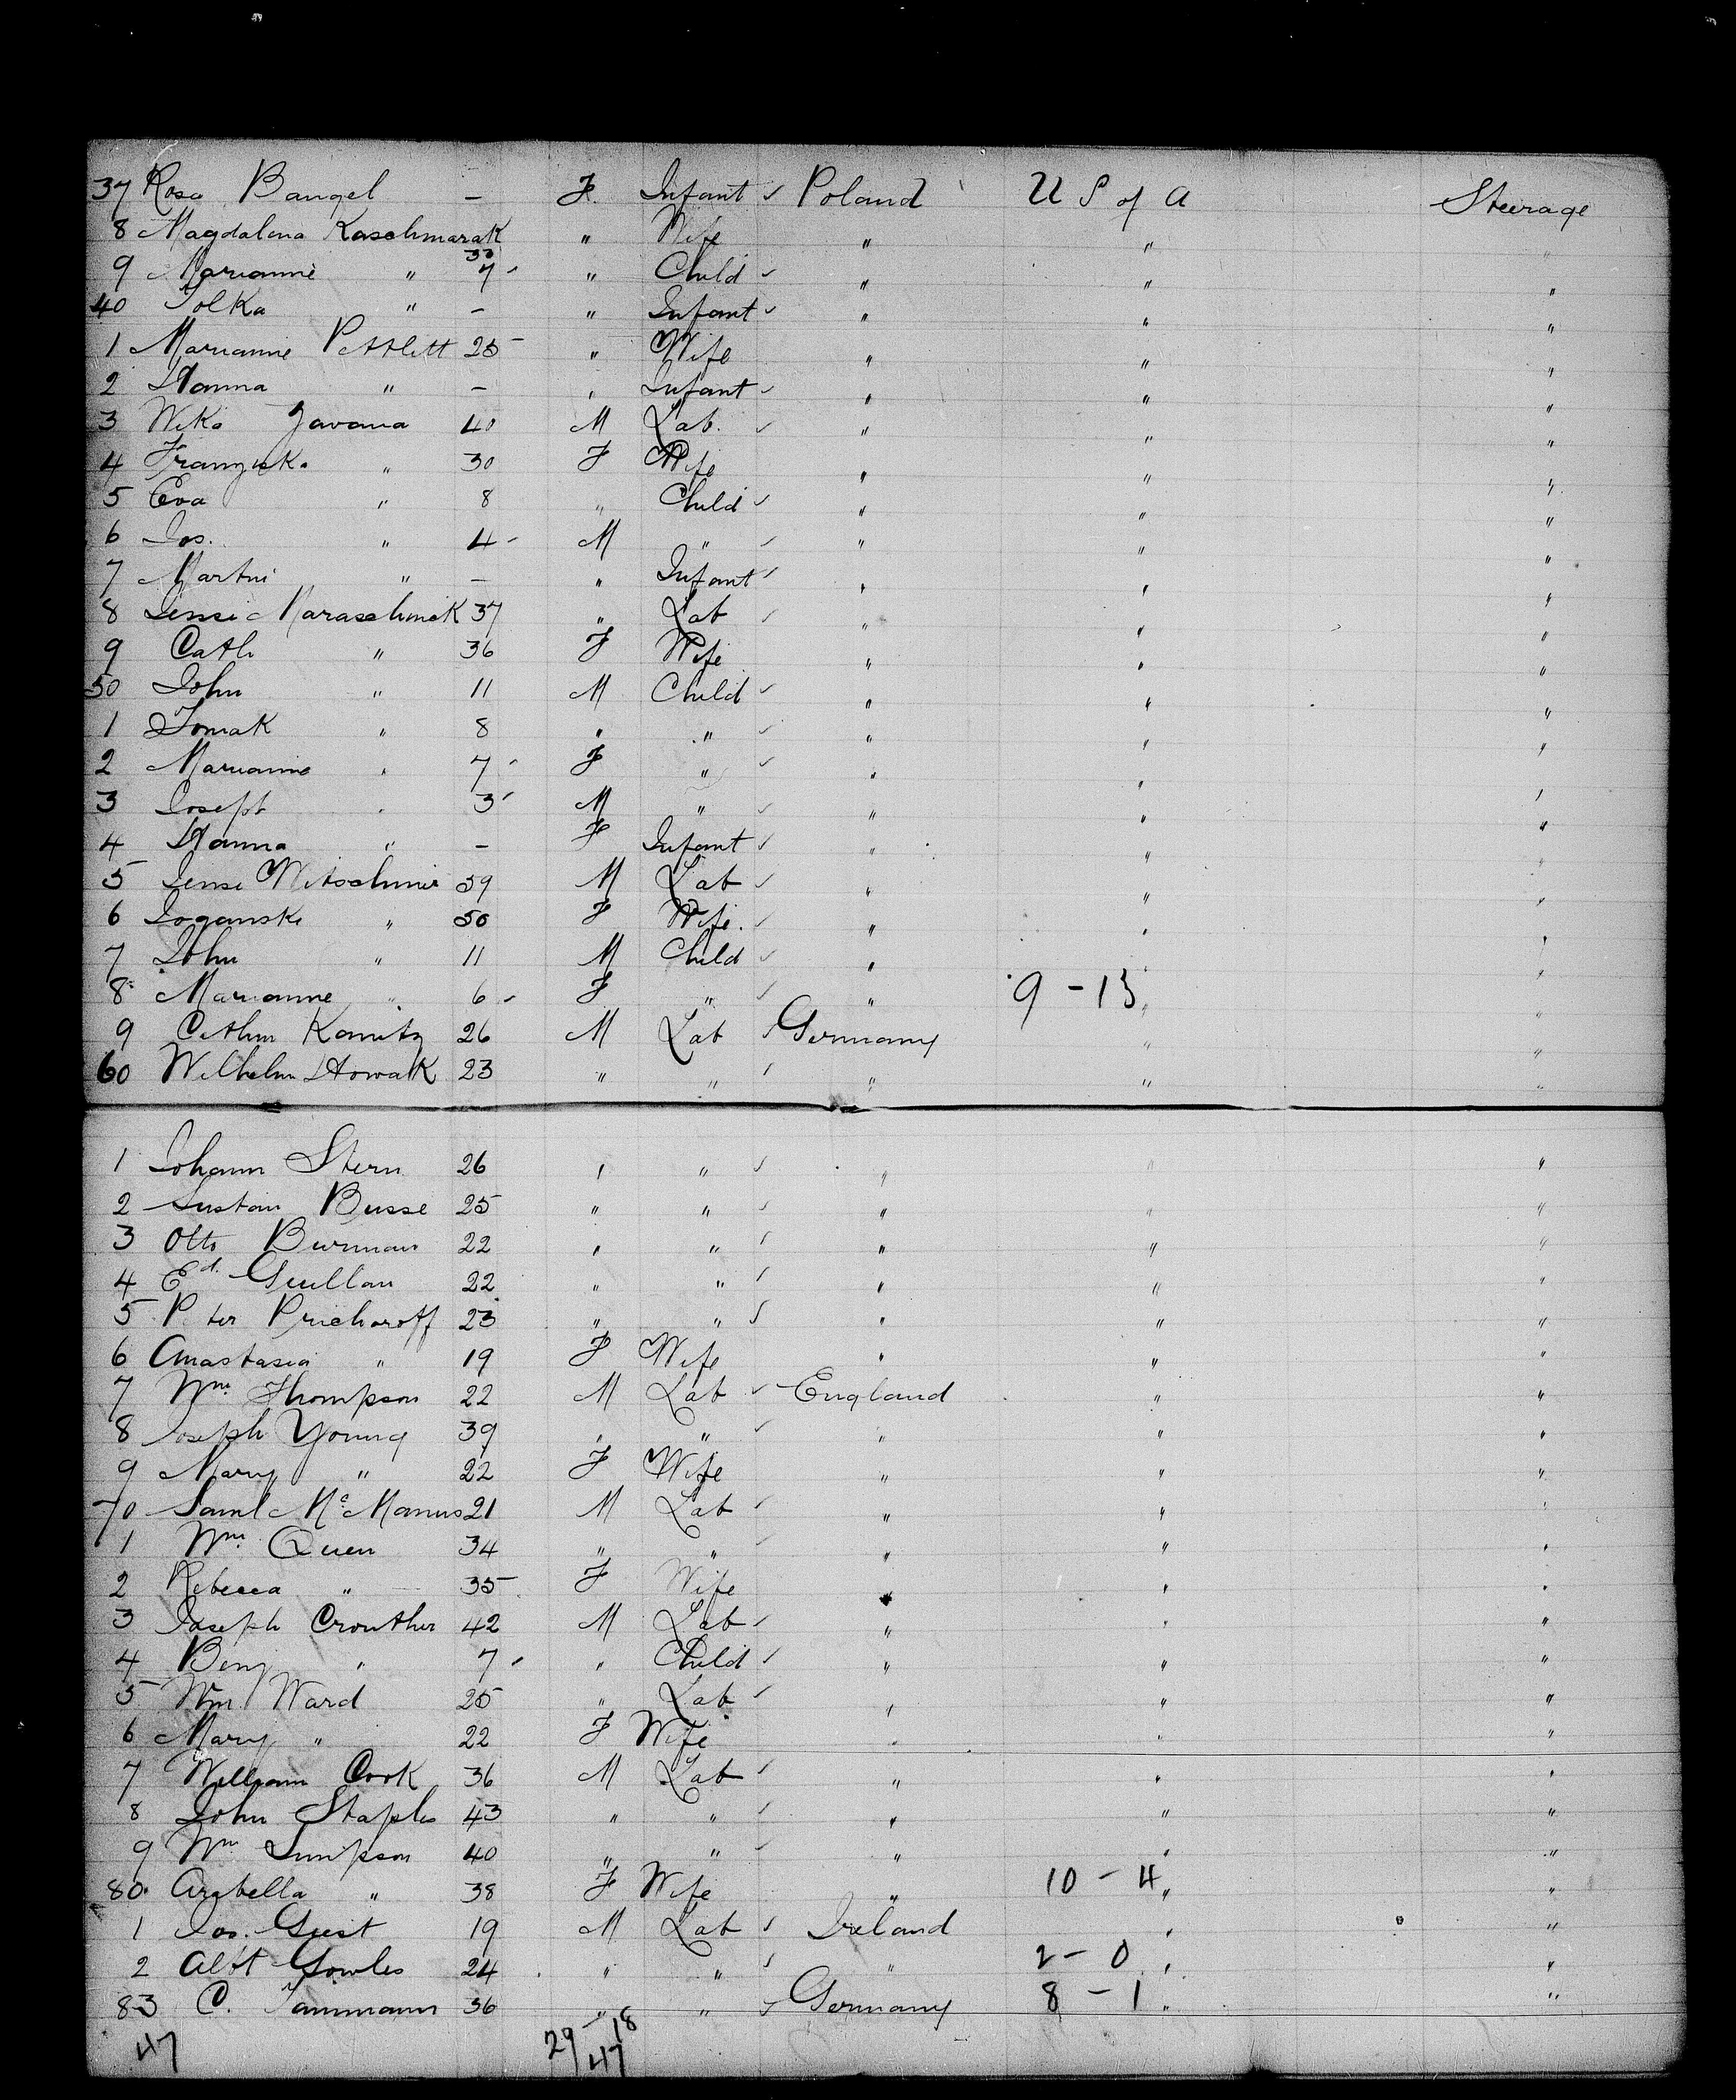 37 Rosa Bangel — F. Infant ✓ Poland U S of A Steerage
8 Magdalena Kaschmarak 33 " Wife " " "
9 Marianne " 7 " Child ✓ " " "
40 Tolka " — " Infant ✓ " " "
1 Marianne 25 " Wife " " "
2 Hanna " — " Infant ✓ " " "
3 Wika Javana 40 M Lab. ✓ " " "
4 " 30 F Wife " " "
5 Eva " 8 " Child ✓ " " "
6 Jos. " 4 M " ✓ " " "
7 Martni " — " Infant ✓ " " "
8 Maraschinck 37 " Lab ✓ " " "
9 Cath " 36 F Wife " " "
50 John " 11 M Child ✓ " " "
1 Tomak " 8 " " ✓ " " "
2 Marianne " 7 F " ✓ " " "
3 Joseph " 3 M " ✓ " " "
4 Hanna " — F Infant ✓ " " "
5 Witoschmir 59 M Lab ✓ " " "
6 Joganski " 50 F Wife. ✓ " " "
7 John " 11 M Child ✓ " " "
8 Marianne " 6 F " ✓ " 9 - 13 " "
9 Kamitz 26 M Lab ✓ Germany " "
60 Wilhelm Howak 23 " " ✓ " " "
1 Johann Stern 26 " " ✓ " " "
2 Gustav Busse 25 " " ✓ " " "
3 Otto Burman 22 " " ✓ " " "
4 Ed. Gullan 22 " " ✓ " " "
5 Peter Pricharoff 23 " " ✓ " " "
6 Anastasia " 19 F Wife " " "
7 Wm. Thompson 22 M Lab ✓ England " "
8 Joseph Young 39 " " ✓ " " "
9 Mary " 22 F Wife " " "
70 Saml McManus 21 M Lab ✓ " " "
1 Wm. Quen 34 " " ✓ " " "
2 Rebecca " 35 F Wife " " "
3 Joseph Crouther 42 M Lab ✓ " " "
4 Benj " 7 " Child ✓ " " "
5 Wm. Ward 25 " Lab ✓ " " "
6 Mary " 22 F Wife " " "
7 William Cook 36 M Lab ✓ " " "
8 John Staples 43 " " ✓ " " "
9 Wm Simpson 40 " " ✓ " " "
80 Arabella " 38 F Wife " 10 - 4 " "
1 Jos. Gust 19 M Lab ✓ Ireland " "
2 Albt Gowles 24 " " ✓ " 2 - 0 " "
83 C. Tammann 36 " " ✓ Germany 8 - 1 " "
47 29 - 18
47